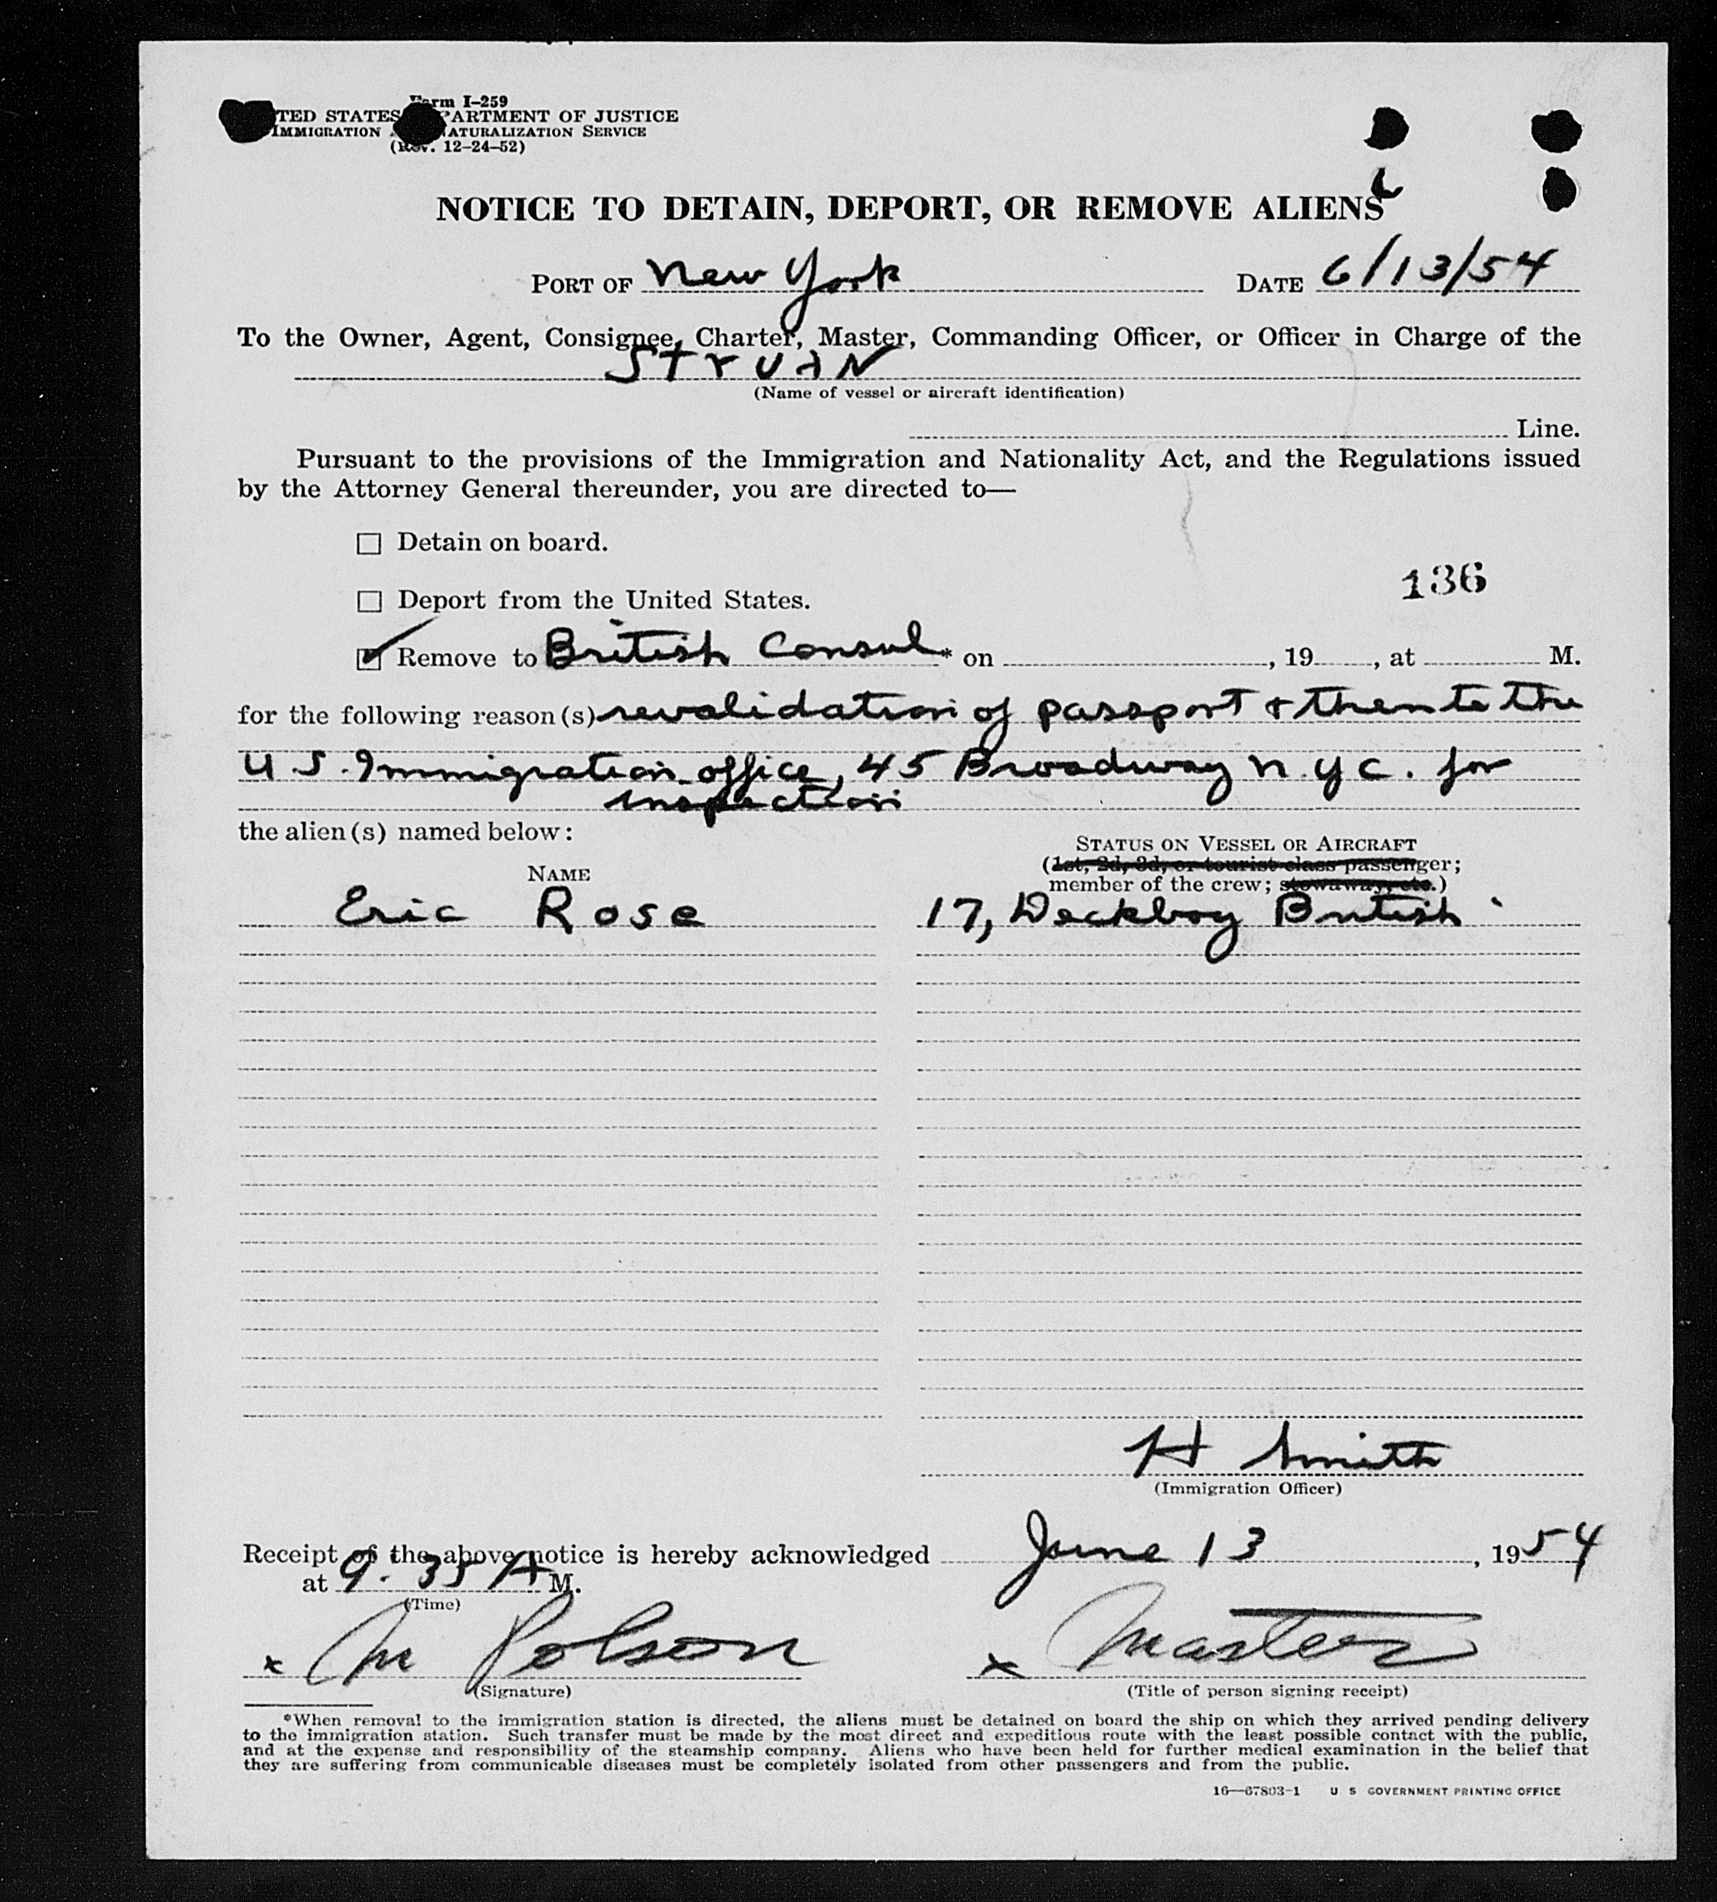 Form I-259
TED STATES PARTMENT OF JUSTICE
IMMIGRATION ATURALIZATION SERVICE
(Rev. 12-24-52)
NOTICE TO DETAIN, DEPORT, OR REMOVE ALIENS
PORT OF New York DATE 6/13/54
To the Owner, Agent, Consignee, Charter, Master, Commanding Officer, or Officer in Charge of the
STrUAN
(Name of vessel or aircraft identification)
Line.
Pursuant to the provisions of the Immigration and Nationality Act, and the Regulations issued
by the Attorney General thereunder, you are directed to—
☐ Detain on board.
136
☐ Deport from the United States.
☑ Remove to British Consul* on , 19 , at M.
for the following reason(s) revalidation of passport & then to the
U S. Immigration office, 45 Broadway N.Y.C. for
inspection
the alien(s) named below:
STATUS ON VESSEL OR AIRCRAFT
NAME
(1st, 2d, 3d, or tourist class passenger;
member of the crew; stowaway, etc.)
Eric Rose 17, Deckboy British
H Smith
(Immigration Officer)
Receipt of the above notice is hereby acknowledged June 13, 1954
at 9.35 A M.
(Time)
x M Polson x Master
(Signature) (Title of person signing receipt)
*When removal to the immigration station is directed, the aliens must be detained on board the ship on which they arrived pending delivery
to the immigration station. Such transfer must be made by the most direct and expeditious route with the least possible contact with the public,
and at the expense and responsibility of the steamship company. Aliens who have been held for further medical examination in the belief that
they are suffering from communicable diseases must be completely isolated from other passengers and from the public.
16—67803-1 U S GOVERNMENT PRINTING OFFICE